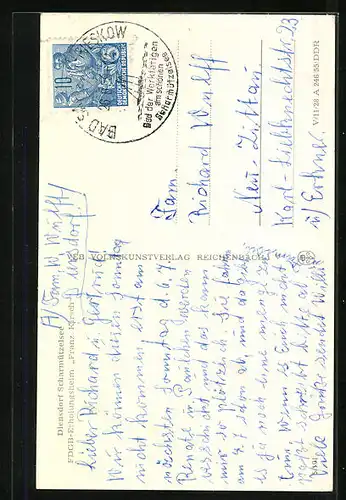 Diensdorf Scharmützelsee
FDGB-Erholungsheim „Franz Kirsch“
A/ Fam. W. Wulff
Diensdorf!
Lieber Richard & Gertrud
Wir können diesen Sonntag
nicht kommen erst am
nächsten Sonntag d. 6. 7.
Renate in
und das kann
nur so plötzlich. Sie fahren
am 4.7 schon ab, und da gibt
es ja noch eine menge zu
tun. Wenn es Euch nicht
paßt schreibt bitte ab
Viele Grüße sendet Willi
VEB VOLKSKUNSTVERLAG REICHENBACH
BAD SAAROW-PIESKOW
Bad der Werktätigen
am schönen
Scharmützelsee
10
DEUTSCHE DEMOKRATISCHE REPUBLIK
Fam.
Richard Wulff
Neu-Zittau
Karl-Liebknechtstr. 23
ü/ Erkner
V/11/28 A 246/55 DDR